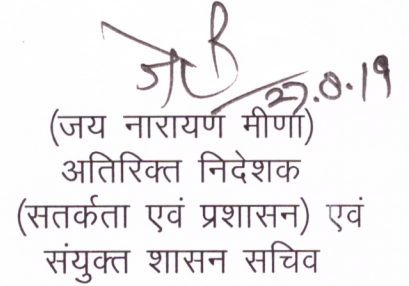 27.8.19
(जय नारायण मीणा)
अतिरिक्त निदेशक
(सतर्कता एवं प्रशासन) एवं
संयुक्त शासन सचिव